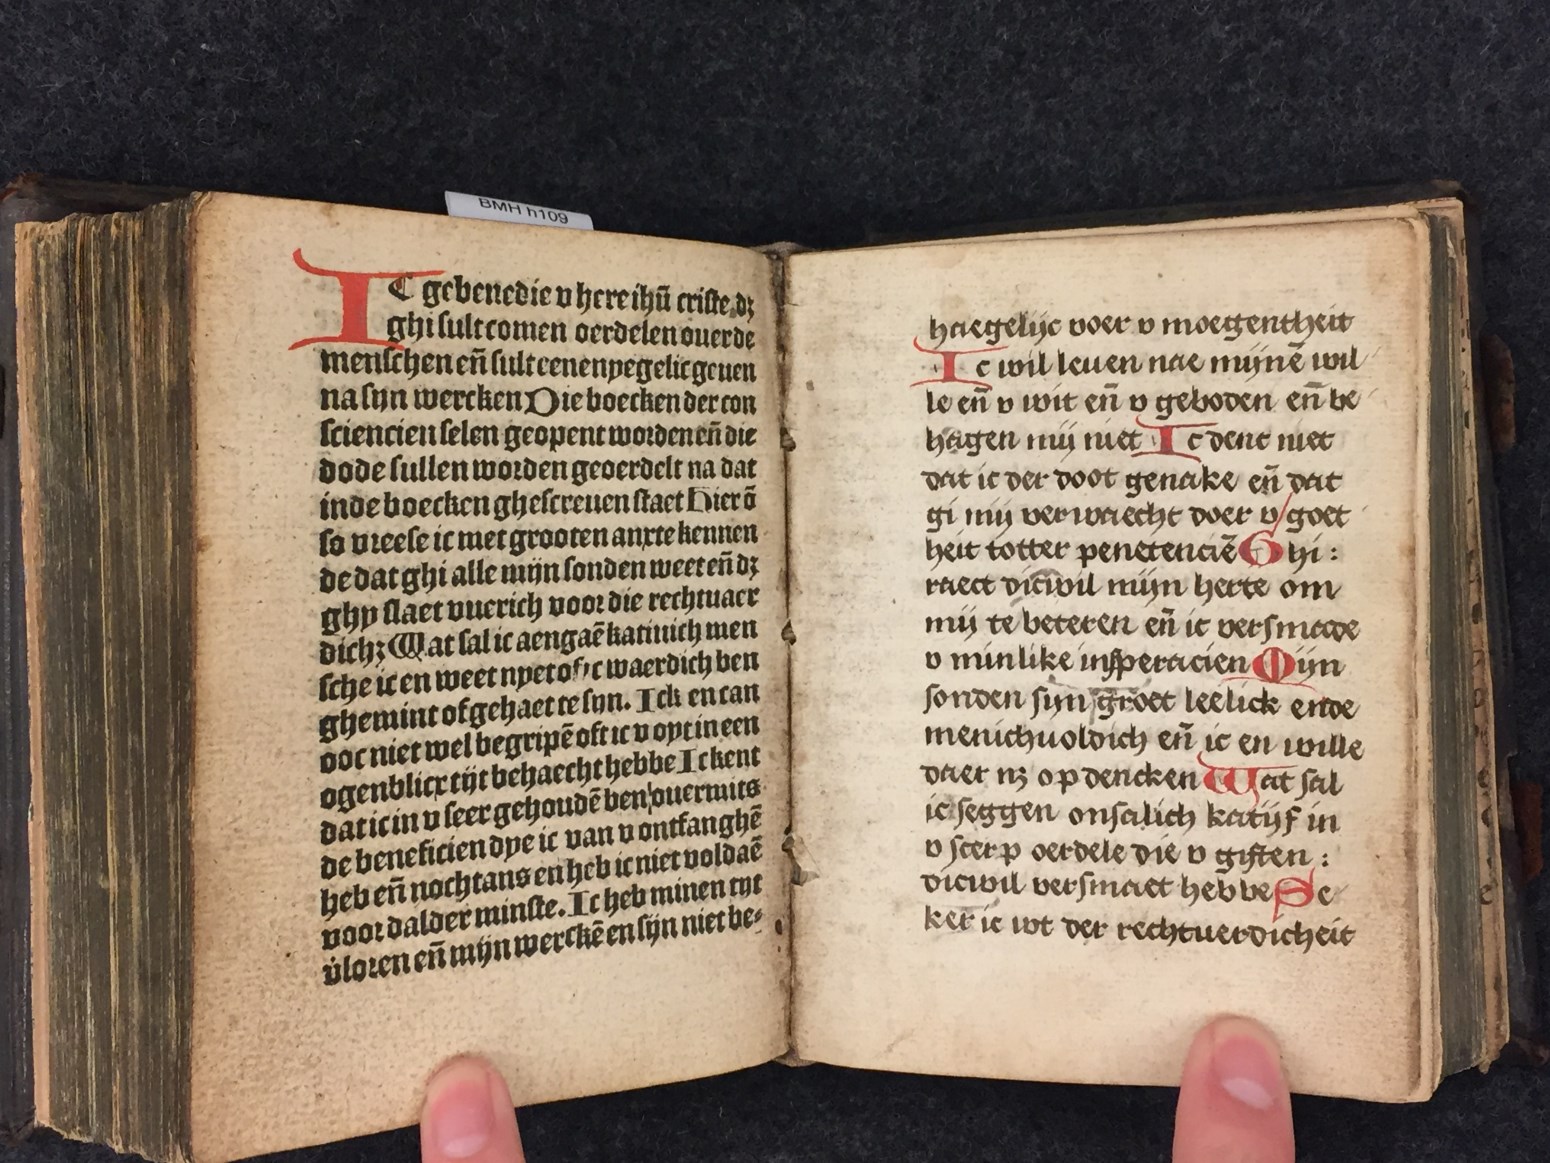 BMH h109
IC gebenedie v here ihū criste dz
ghi sult comen oerdelen ouer de
menschen eñ sult eenen yegelic geuen
na sijn wercken Die boecken der con
sciencien selen geopent worden eñ die
dode sullen worden geoerdelt na dat
in de boecken ghescreuen staet Hier ō
so vreese ic met grooten anxte kennen
de dat ghi alle mijn sonden weet eñ dz
ghy slaet vuerich voor die rechtuaer
dichz Wat sal ic aengaē katiuich men
sche ic en weet nyet of ic waerdich ben
ghemint of gehaet te sijn. Ick en can
ooc niet wel begripē oft ic v oyt in een
ogenblicx tijt behaecht hebbe Ic kent
dat ic in v seer gehoudē ben ouermits
de beneficien dye ic van v ontfanghē
heb eñ nochtans en heb ic niet voldaē
voor dalder minste. Ic heb minen tijt
v̄loren eñ mijn werckē en sijn niet be⸗
haegelijc voer v moegentheit
Ic wil leuen nae mijnē wil
le eñ v wit eñ v geboden eñ be
hagen mij niet Ic denc niet
dat ic der doot genake eñ dat
gi mij verwaecht doer v goet
heit totter penetenciē Ghi :
raect dicwil mijn herte om
mij te beteren eñ ic versmade
v minlike insperacien Mijn
sonden sijn groet leelick ende
menichuoldich eñ ic en wille
daer nz op dencken Wat sal
ic seggen onsalich katijf in
v scerp oerdele die v giften :
dicwil versmaet hebbe Se
ker ic wt der rechtuerdicheit